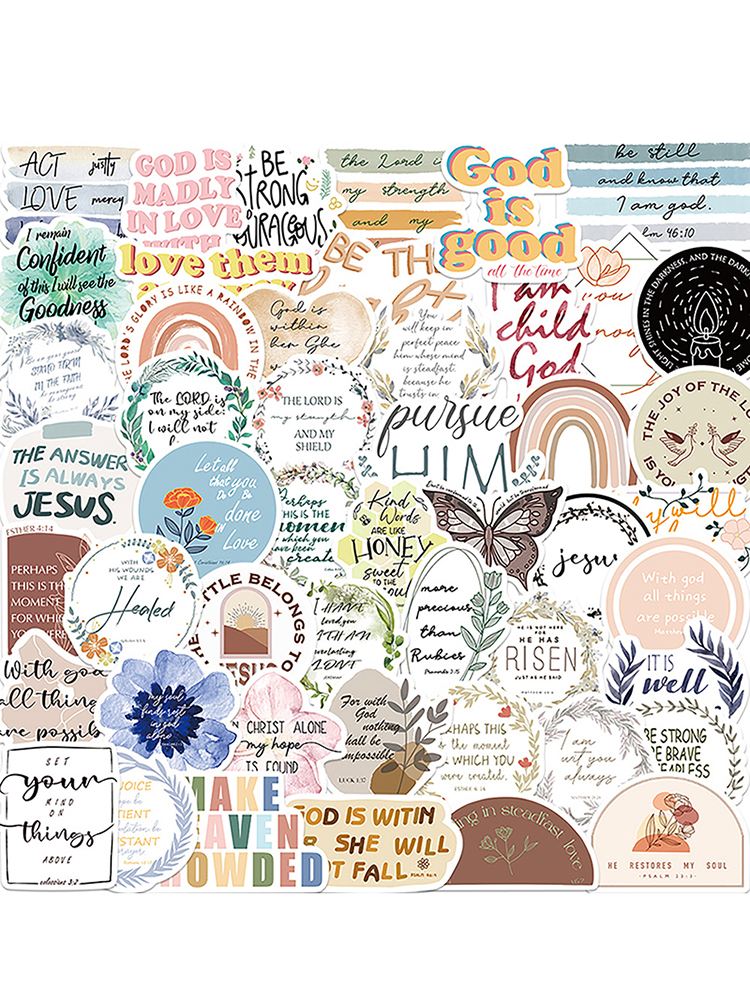 ACT justly
LOVE mercy
GOD IS
MADLY
IN LOVE
WITH
BE
STRONG
COURAGEOUS
the Lord is
my strength
and my
God
is
good
all the time
be still
and know that
I am god.
46:10
I remain
Confident
of this I will see the
Goodness
love them
BE TH
I am
child
God
you
now
LIGHT SHINES IN THE DARKNESS, AND THE DARK
THE LORD'S GLORY IS LIKE A RAINBOW IN THE
God is
within
her She
You
will keep in
perfect peace
him whose mind
is steadfast,
because he
trusts in
STAND FIRM
IN THE FAITH
The LORD is
on my side;
I will not
THE LORD IS
my strength
AND MY
SHIELD
pursue
HIM
THE JOY OF THE
IS YO
THE ANSWER
IS ALWAYS
JESUS
Let all
that you
Do Be
done
in
Love
Perhaps
this is the
moment
which you
have been
create
Kind
Words
ARE LIKE
HONEY
sweet
TO THE
jesus
will
ESTHER 4:14
PERHAPS
THIS IS TH
MOMENT
FOR WHIC
YOU WERE
WITH
HIS WOUNDS
WE ARE
Healed
TLE BELONGS TO
JESUS
I HAVE
loved you
WITH AN
everlasting
LOVE
more
precious
than
Rubies
Proverbs 3:15
HE IS NOT HERE
FOR
HE HAS
RISEN
JUST AS HE SAID
With god
all things
are possible
With god
all thing
are possib
my soul
finds rest
in god
alone
CHRIST ALONE
my hope
IS FOUND
For with
God
nothing
shall be
impossible
LUKE 1:37
PERHAPS THIS
is the moment
WHICH YOU
were created.
ESTHER 4:14
I am
with you
always
IT IS
well
BE STRONG
BE BRAVE
FEARLESS
SET
your
MIND
ON
things
ABOVE
colossians 3:2
JOICE
hope be
TIENT
STANT
prayer
MAKE
HEAVEN
CROWDED
GOD IS WITIN
R SHE WILL
OT FALL
ing in steadfast love
HE RESTORES MY SOUL
-PSALM 23:3-